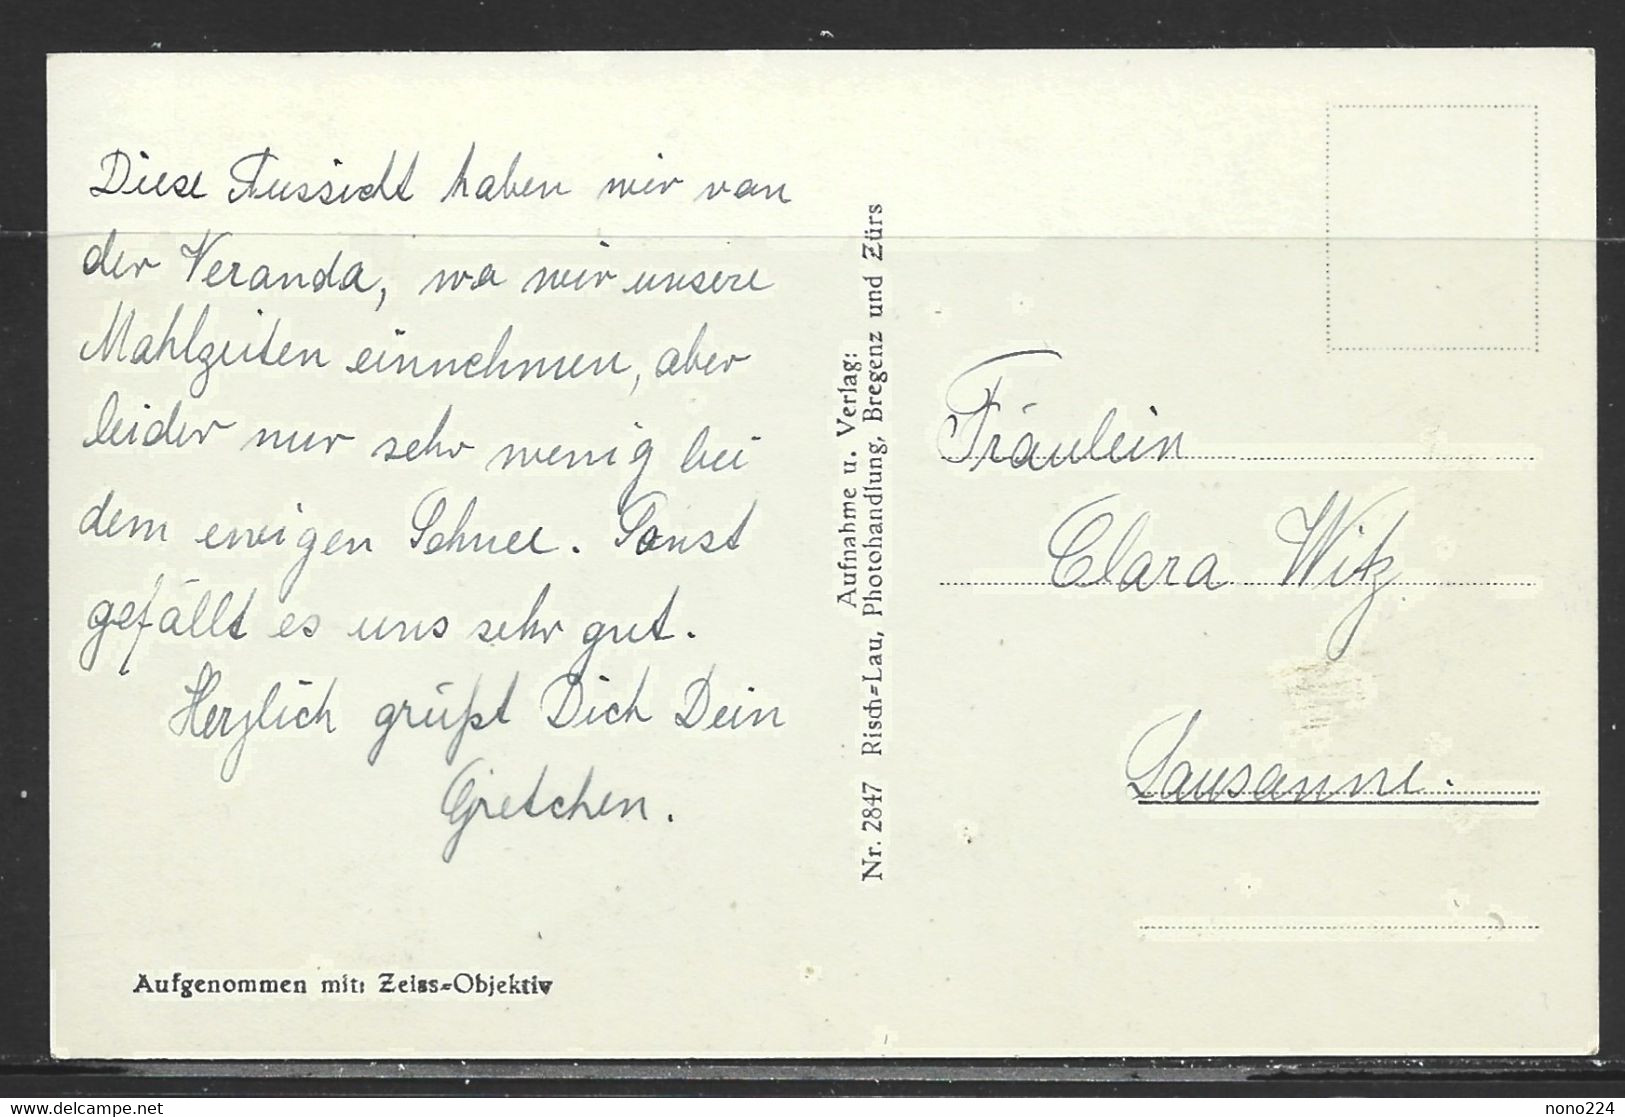 Diese Aussicht haben wir von
der Veranda, wo wir unsere
Mahlzeiten einnehmen, aber
leider nur sehr wenig bei
dem ewigen Schnee. Sonst
gefällt es uns sehr gut.
Herzlich grüßt Dich Dein
Gretchen.
Aufgenommen mit: Zeiss-Objektiv
Aufnahme u. Verlag:
Nr. 2847 Risch-Lau, Photohandlung, Bregenz und Zürs
Fräulein
Clara Witz
Lausanne.
delcampe.net
nono224